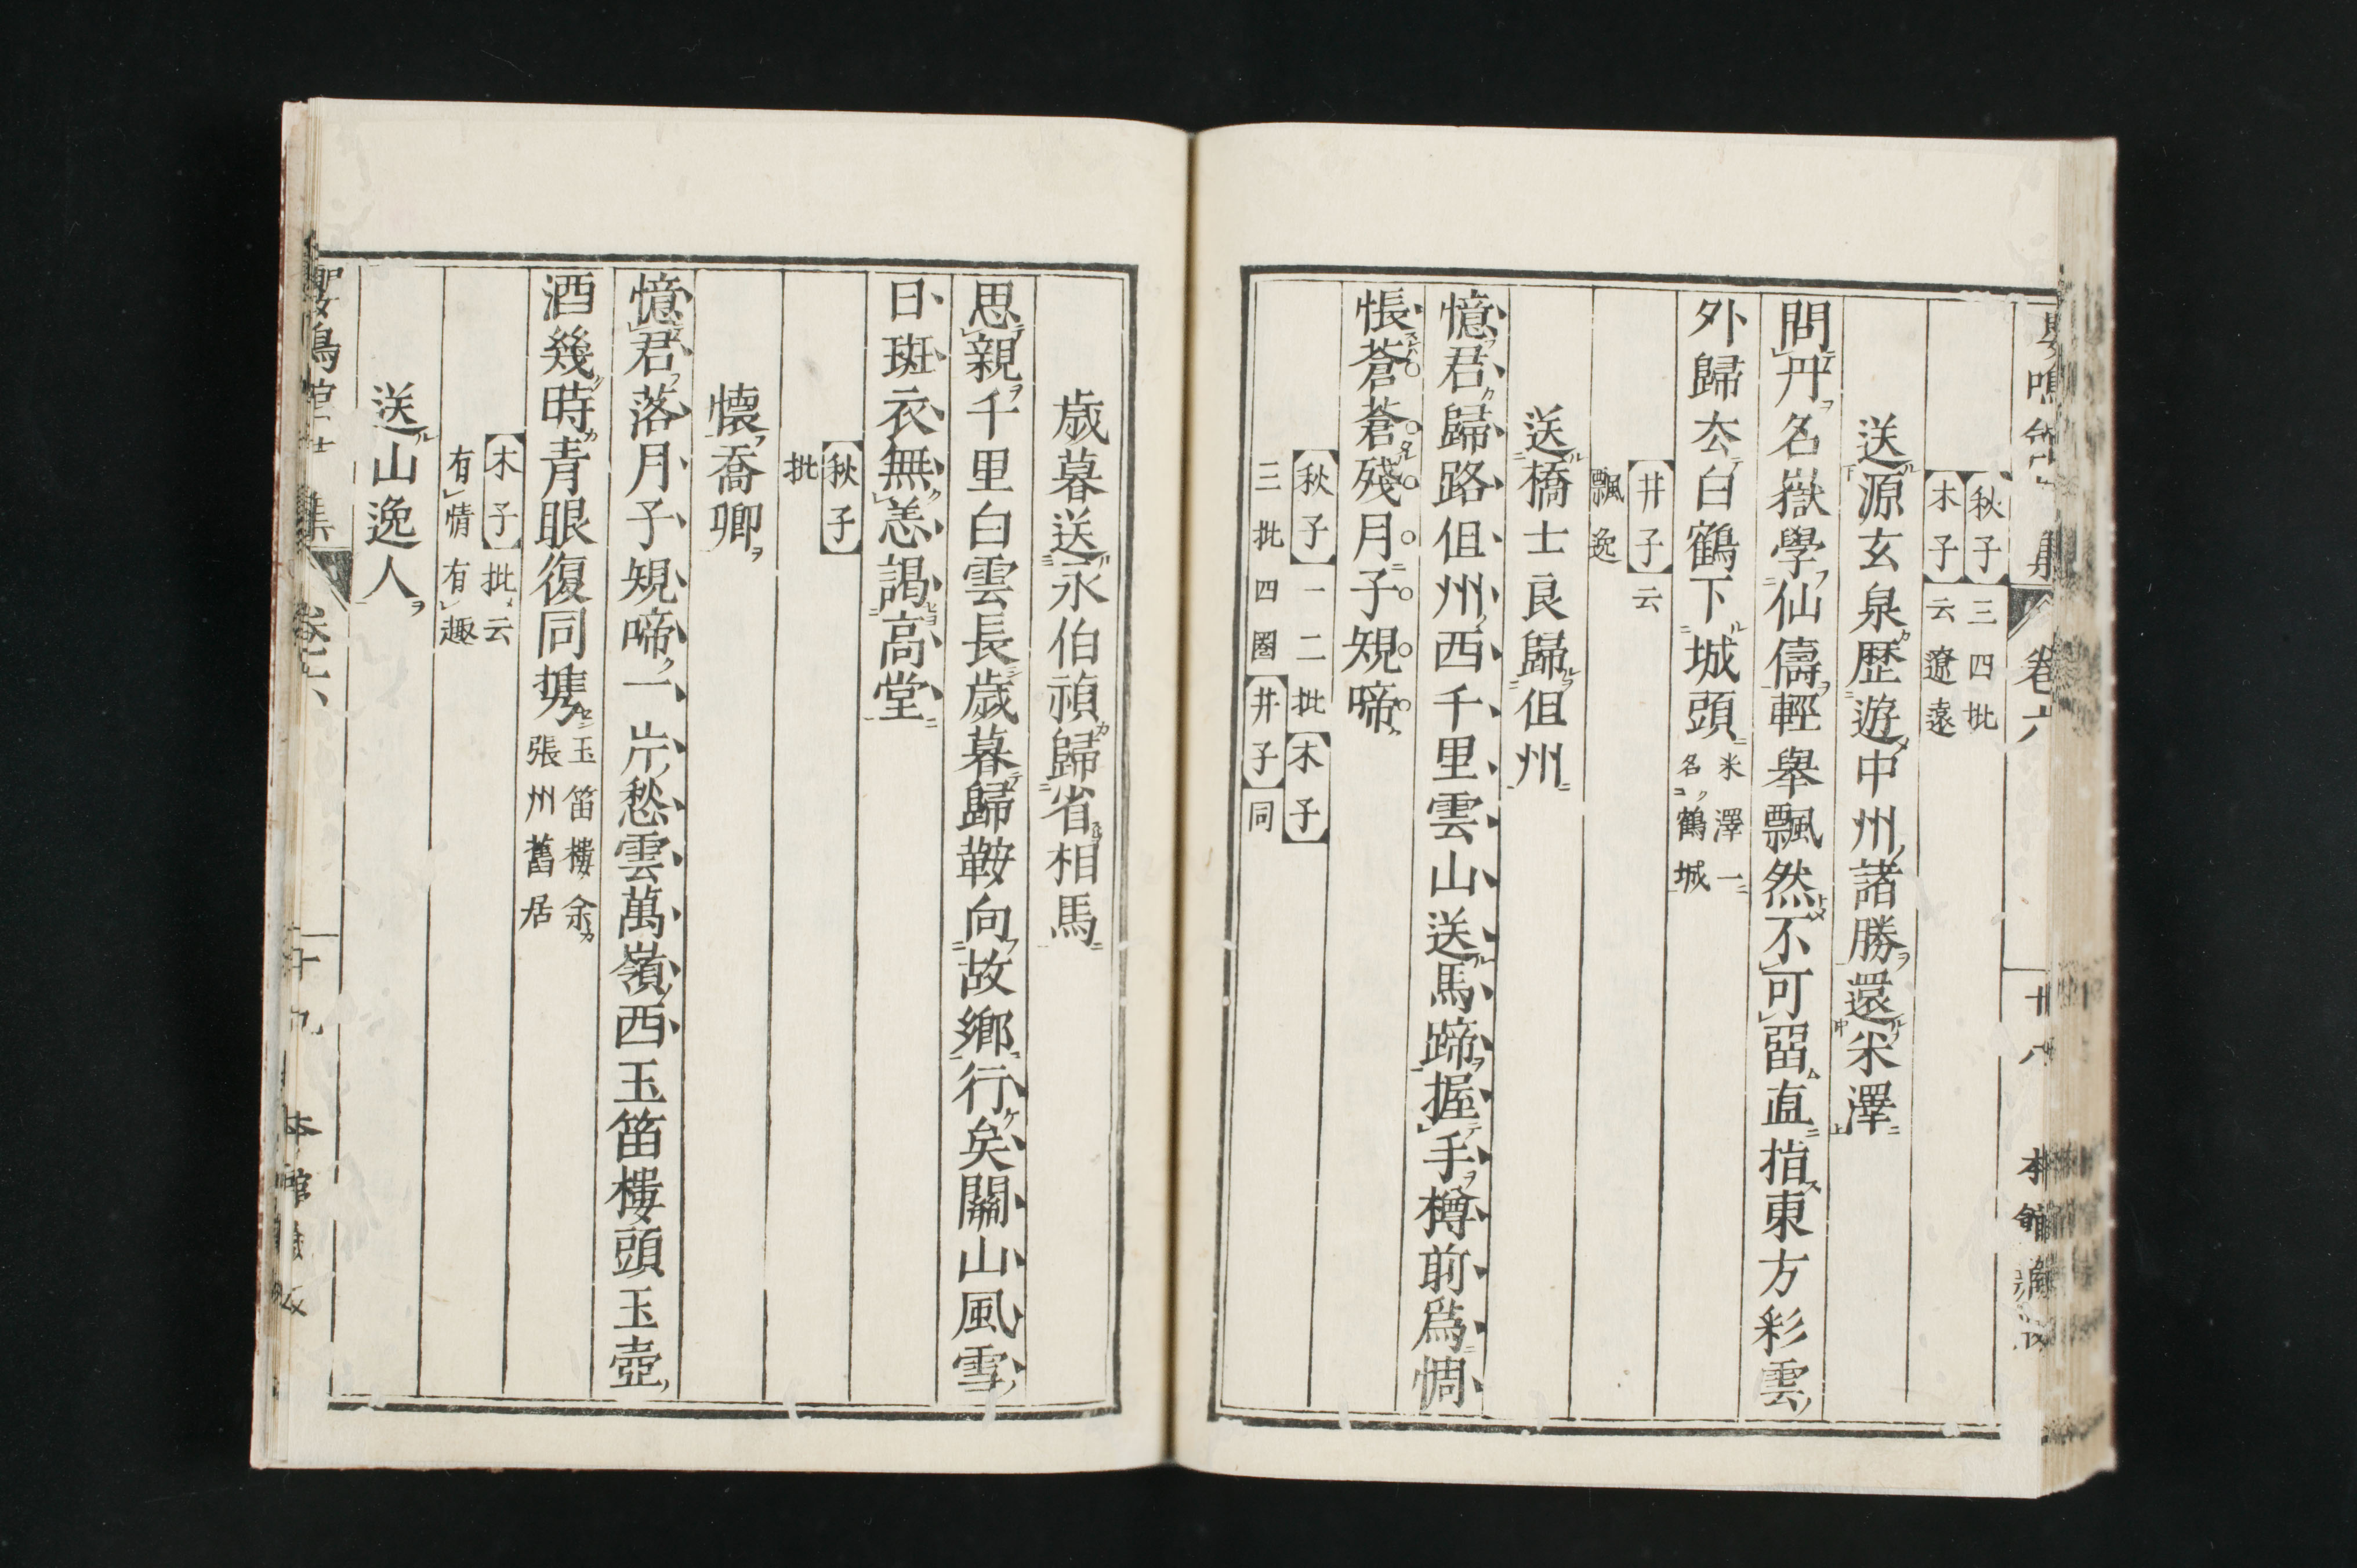 【秋子】三四批
【木子】云遼遠
送源玄泉歷遊中州諸勝還米澤
問丹名嶽學仙儔輕舉飄然不可留直指東方彩雲
外歸去白鶴下城頭米澤一
名鶴城
【井子】云
飄逸
送橋士良歸但州
憶君歸路但州西千里雲山送馬蹄握手樽前爲惆
悵蒼蒼殘月子規啼
【秋子】一二批【木子】
三批四圈【井子】同
卷六
歲暮送永伯禎歸省相馬
思親千里白雲長歲暮歸鞍向故鄉行矣關山風雪
日斑衣無恙謁高堂
【秋子】
批
懷喬卿
憶君落月子規啼一片愁雲萬嶺西玉笛樓頭玉壺
酒幾時青眼復同攜玉笛樓余
張州舊居
【木子】批云
有情有趣
送山逸人